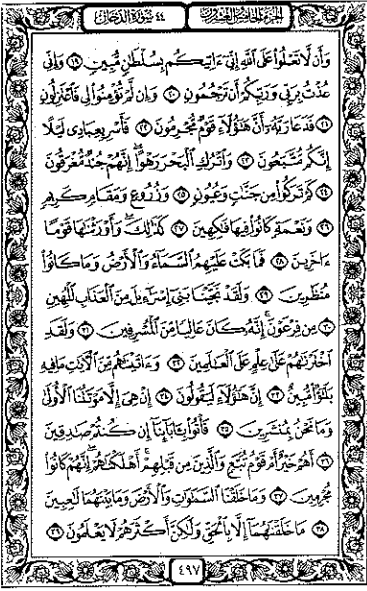 الجزء الخامس والعشرون ٤٤ سورة الدخان
وَأَن لَّا تَعْلُوا۟ عَلَى ٱللَّهِ إِنِّىٓ ءَاتِيكُم بِسُلْطَٰنٍ مُّبِينٍ ١٩ وَإِنِّى
عُذْتُ بِرَبِّى وَرَبِّكُمْ أَن تَرْجُمُونِ ٢٠ وَإِن لَّمْ تُؤْمِنُوا۟ لِى فَٱعْتَزِلُونِ
٢١ فَدَعَا رَبَّهُۥٓ أَنَّ هَٰٓؤُلَآءِ قَوْمٌ مُّجْرِمُونَ ٢٢ فَأَسْرِ بِعِبَادِى لَيْلًا
إِنَّكُم مُّتَّبَعُونَ ٢٣ وَٱتْرُكِ ٱلْبَحْرَ رَهْوًا ۖ إِنَّهُمْ جُندٌ مُّغْرَقُونَ
٢٤ كَمْ تَرَكُوا۟ مِن جَنَّٰتٍ وَعُيُونٍ ٢٥ وَزُرُوعٍ وَمَقَامٍ كَرِيمٍ
٢٦ وَنَعْمَةٍ كَانُوا۟ فِيهَا فَٰكِهِينَ ٢٧ كَذَٰلِكَ ۖ وَأَوْرَثْنَٰهَا قَوْمًا
ءَاخَرِينَ ٢٨ فَمَا بَكَتْ عَلَيْهِمُ ٱلسَّمَآءُ وَٱلْأَرْضُ وَمَا كَانُوا۟
مُنظَرِينَ ٢٩ وَلَقَدْ نَجَّيْنَا بَنِىٓ إِسْرَٰٓءِيلَ مِنَ ٱلْعَذَابِ ٱلْمُهِينِ
٣٠ مِن فِرْعَوْنَ ۚ إِنَّهُۥ كَانَ عَالِيًا مِّنَ ٱلْمُسْرِفِينَ ٣١ وَلَقَدِ
ٱخْتَرْنَٰهُمْ عَلَىٰ عِلْمٍ عَلَى ٱلْعَٰلَمِينَ ٣٢ وَءَاتَيْنَٰهُم مِّنَ ٱلْءَايَٰتِ مَا فِيهِ
بَلَٰٓؤٌا۟ مُّبِينٌ ٣٣ إِنَّ هَٰٓؤُلَآءِ لَيَقُولُونَ ٣٤ إِنْ هِىَ إِلَّا مَوْتَتُنَا ٱلْأُولَىٰ
وَمَا نَحْنُ بِمُنشَرِينَ ٣٥ فَأْتُوا۟ بِـَٔابَآئِنَآ إِن كُنتُمْ صَٰدِقِينَ
٣٦ أَهُمْ خَيْرٌ أَمْ قَوْمُ تُبَّعٍ وَٱلَّذِينَ مِن قَبْلِهِمْ ۚ أَهْلَكْنَٰهُمْ ۖ إِنَّهُمْ كَانُوا۟
مُجْرِمِينَ ٣٧ وَمَا خَلَقْنَا ٱلسَّمَٰوَٰتِ وَٱلْأَرْضَ وَمَا بَيْنَهُمَا لَٰعِبِينَ
٣٨ مَا خَلَقْنَٰهُمَآ إِلَّا بِٱلْحَقِّ وَلَٰكِنَّ أَكْثَرَهُمْ لَا يَعْلَمُونَ ٣٩
٤٩٧